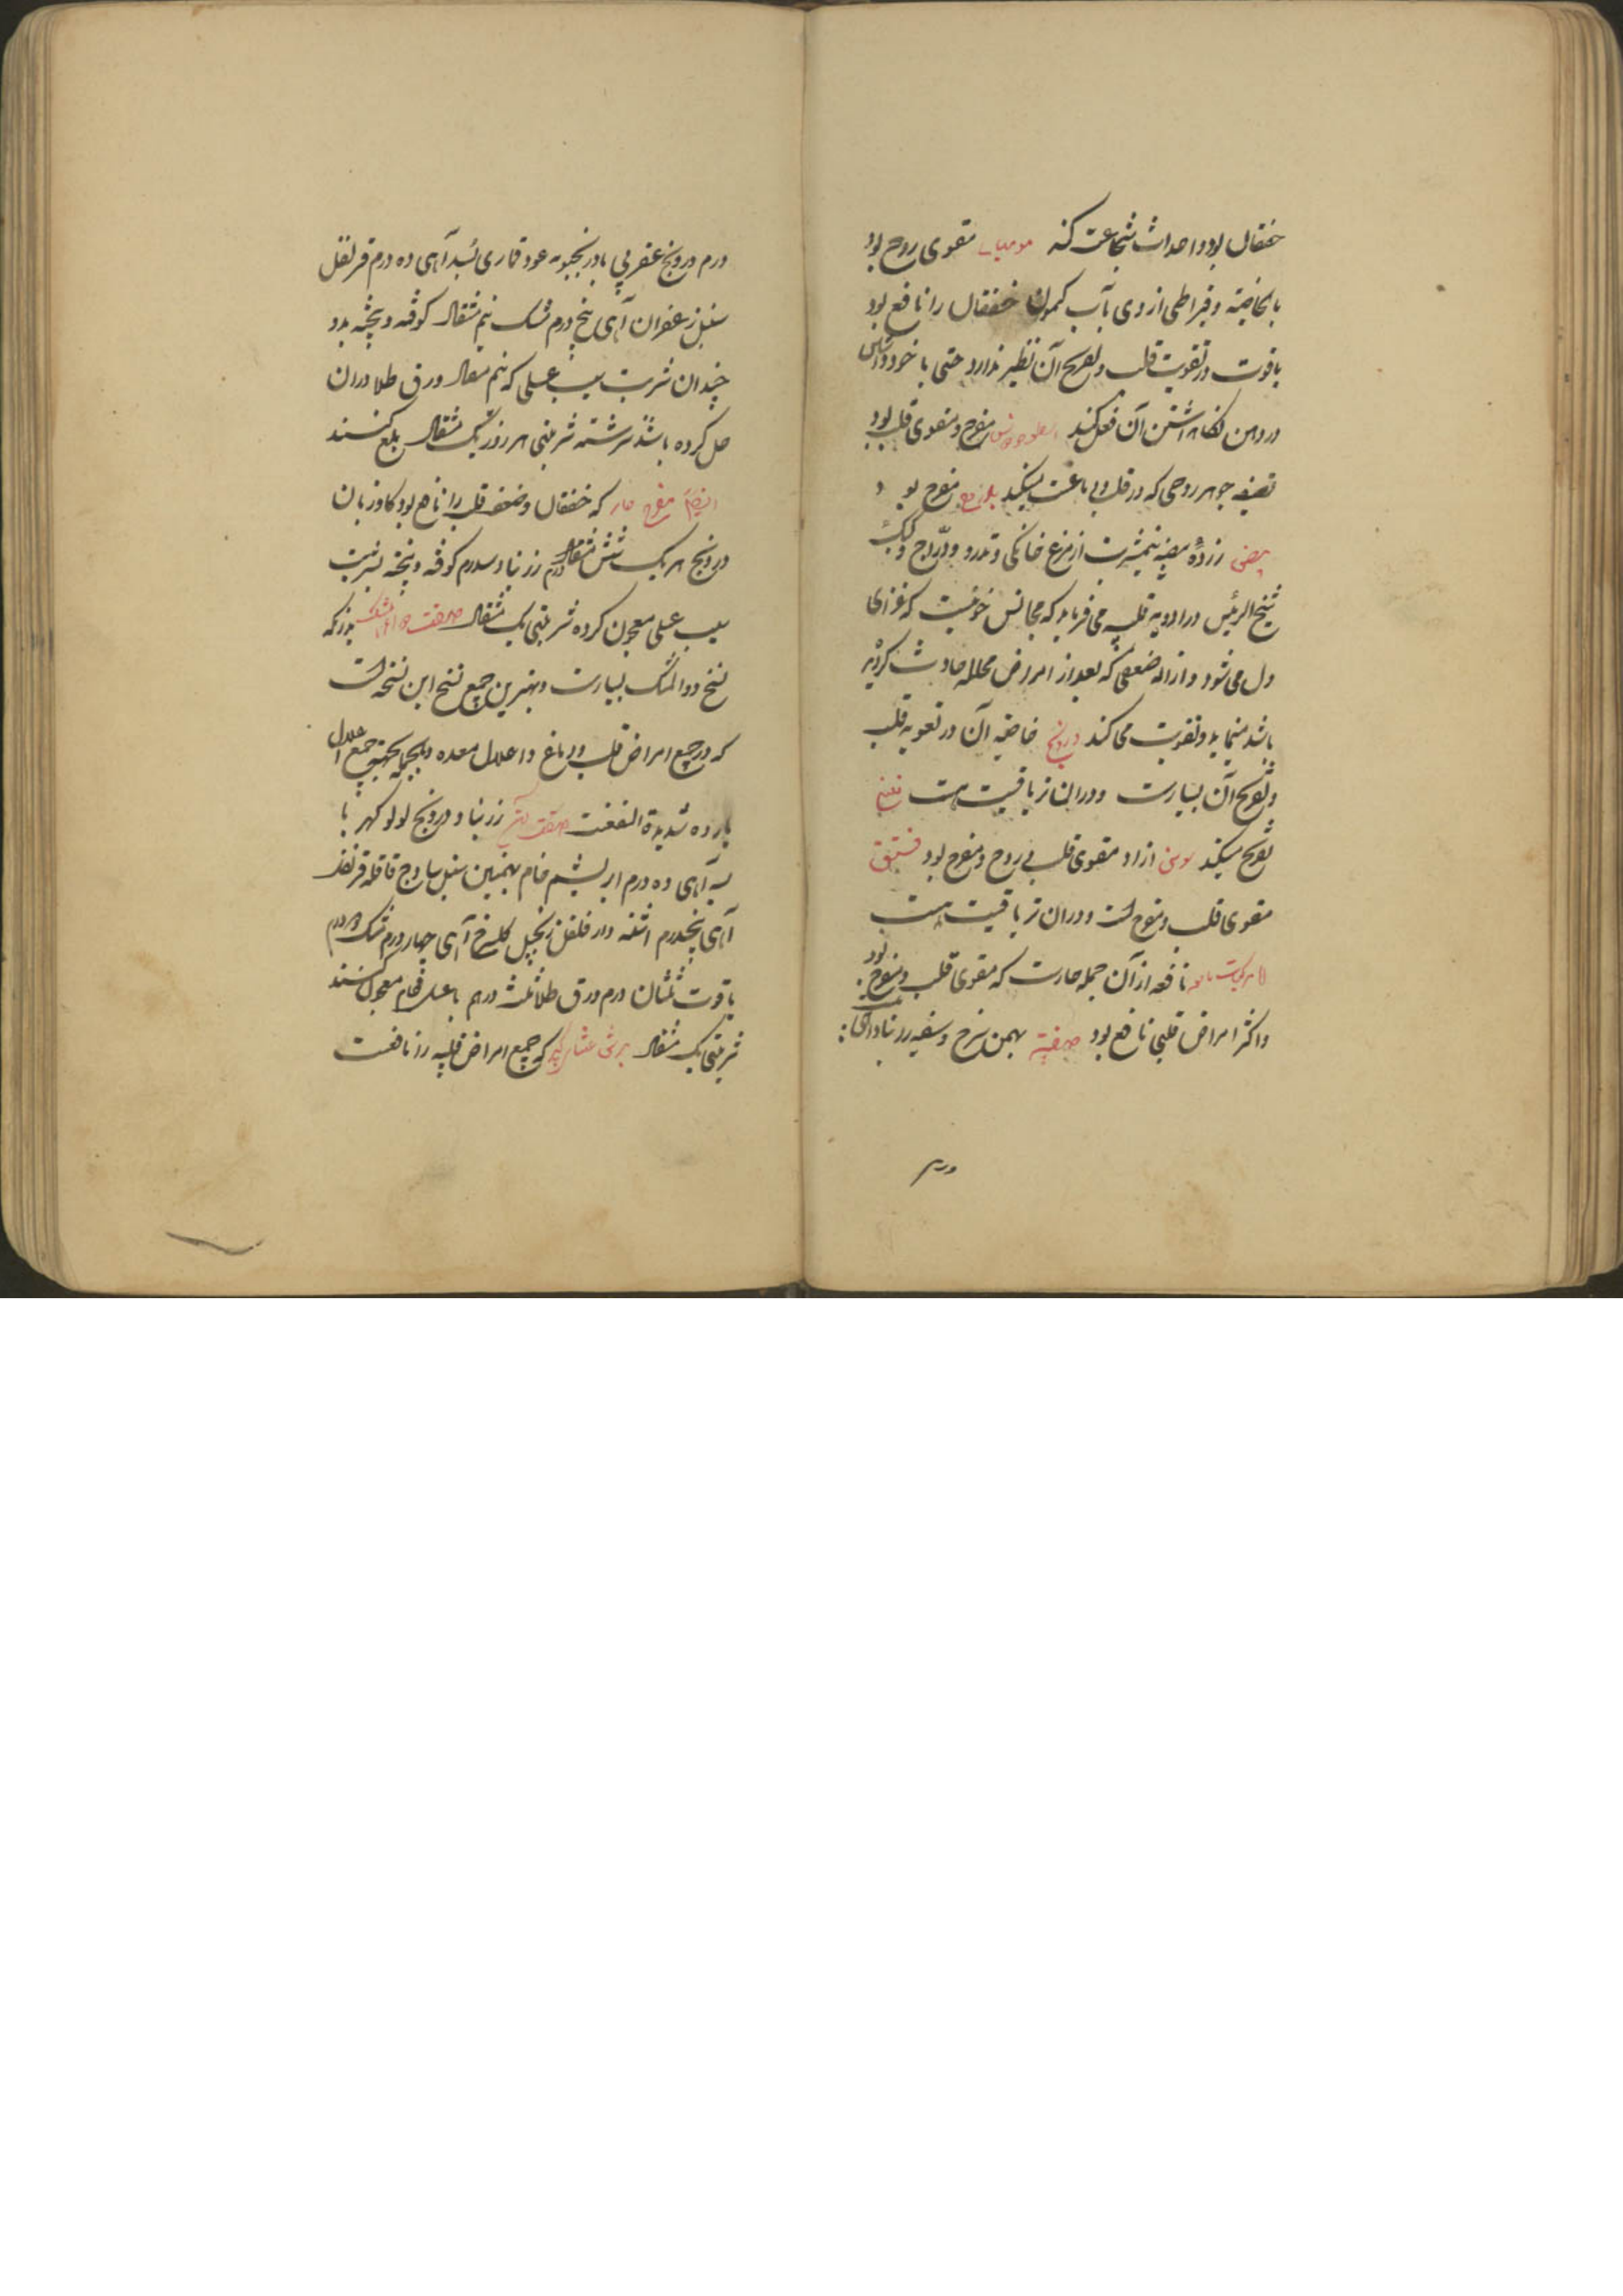 خفقان بود و احداث شجاعت کند مومیایی مقوی روح بود
بالخاصیة و قیراطی از وی بآب کمون خفقان را نافع بود
یاقوت در تقویت قلب و تفریح آن نظیر ندارد حتی با خود داشتن
در دهن نگاهداشتن آن فعل کند اسطوخودوس مفرح و مقوی قلب بود
تصفیه جوهر روحی که در قلب و دماغست میکند مفرح بود
بیض زرده بیضه نیمبرشت از مرغ خانگی و تدرو و دراج و کبک
شیخ الرئیس در ادویه قلبیه می فرماید که مجانس خونیست که غذای
دل می شود و ازاله ضعفی که بعد از امراض محلله حادث گردیده
باشد مینماید و تقویت می کند درونج خاصیه آن در تقویه قلب
و تفریح آن بسیارست و در آن تریاقیت هست
تفریح میکند سوسن ازاد مقوی قلب و روح و مفرح بود فستق
مقوی قلب و مفرح است و در آن تریاقیت هست
اما مرکبات نافعه از آن جمله حارست که مقوی قلب و مفرح بود
و اکثر امراض قلبی نافع بود صفته بهمن سرخ و سفید زرنباد
درم
درم درونج عقربی بادرنجبویه عود قماری بسد آهی ده درم قرنفل
سنبل زعفران آهی پنج درم مشک نیم مثقال کوفته و بیخته بدو
چندان شربت سیب عسلی که نیم مثقال ورق طلا در آن
حل کرده باشند سرشته شربتی هر روز یک مثقال بلع کنند
ایضا مفرح حار که خفقان و ضعف قلب را نافع بود کاوزبان
درونج هر یک شش مثقال زرنباد درم کوفته و بیخته بشربت
سیب عسلی معجون کرده شربتی یک مثقال صفت دواء المسک بدانکه
نسخ دواء المسک بسیارست و بهترین جمیع نسخ این نسخه است
که در جمیع امراض قلب و دماغ و اعلال معده و بالجمله بجهت جمیع اعلال
بارده شدیدة النفعست صفت آن زرنباد و درونج لولو کهربا
بسد آهی ده درم ابریشم خام بهمنین سنبل ساذج قاقله قرنفل
آهی پنجدرم اشنه دارفلفل زنجبیل کلسرخ آهی چهار درم مشک
یاقوت ثلثان درم ورق طلا ثلث درهم با عسل قوام معجون کنند
شربتی یک مثقال که جمیع امراض قلبیه را نافعست